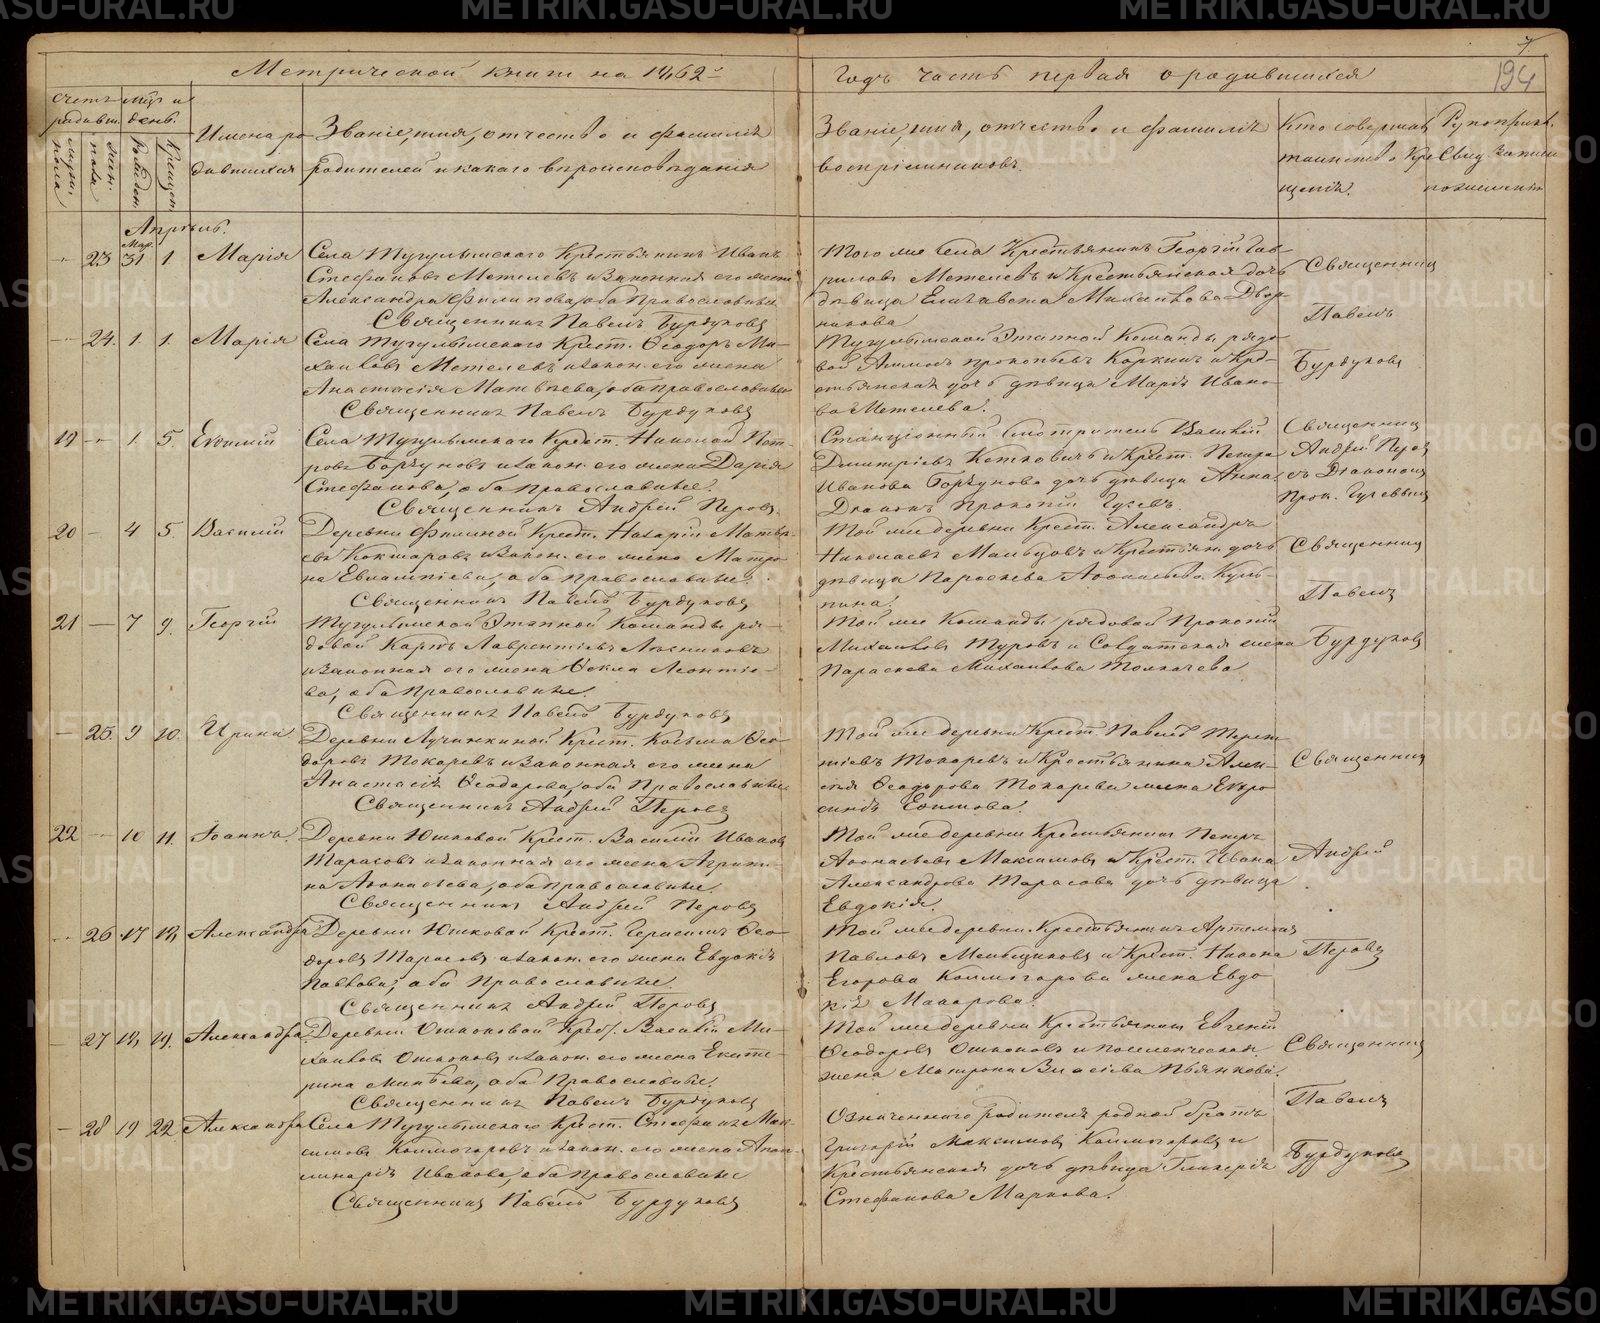 METRIKI.GASO-URAL.RU
7
194
Метрической книги на 1862й
Годъ часть первая о родившихся
Счетъ родивш.
муж. пола
жен. пола
Мѣс. и день.
Рожден.
Крещен.
Имена родившихся
Званіе, имя, отчество и фамилія
родителей и какого вѣроисповѣданія
Званіе, имя, отчество и фамилія
воспріемниковъ.
Кто совершал
таинство Кре
щенія.
Рукоприкл.
Свид. записи
по желанію
Апрѣль.
23 Мар. 31 1 Марія
Села Тугулымскаго Крестьянинъ Иванъ
Стефановъ Метелевъ и законная его жена
Александра Филипова, оба Православные
Священникъ Павелъ Бурдуковъ
Того же села Крестьянинъ Георгій Гав-
риловъ Метелевъ и Крестьянская дочь
дѣвица Елисавета Михайлова Двор-
никова
Священник
Павелъ
Бурдуковъ
24. 1. 1. Марія
Села Тугулымскаго Крест. Ѳеодоръ Ми-
хаиловъ Метелевъ и закон. его жена
Анастасія Матвѣева, оба православные
Священникъ Павелъ Бурдуковъ
Тугулымской Этапной Команды рядо
вой Прокопьевъ Коркинъ и Кре-
стьянская дочь дѣвица Марія Ивано-
ва Метелева.
19 1. 5. Евѳимій
Села Тугулымскаго Крест. Николай Пет-
ровъ Боркуновъ и закон. его жена Дарія
Стефанова, оба православные.
Священникъ Андрей Перовъ
Станціонный Смотритель Василій
Дмитріевъ Кетковичъ и Крест. Петра
Иванова Боркунова дочь дѣвица Анна.
Діаконъ Прокопій Гусевъ.
Священник
Андрей Перов
съ Діаконом
Прок. Гусевым
20 4 5. Василій
Деревни Филиной Крест. Назарій Матвѣ-
евъ Кокшаровъ и закон. его жена Матро
на Евлампіева, оба православные.
Священникъ Павелъ Бурдуковъ
Той же деревни Крест. Александръ
Николаевъ Мальцовъ и Крестьян. дочь
дѣвица Параскева Аѳонасьева
Священник
Павелъ
Бурдуковъ
21 7 9. Георгій
Тугулымской Этапной Команды ря-
довой Карпъ Лаврентіевъ
и законная его жена Ѳекла Леонтіе-
ва, оба Православные.
Священникъ Павелъ Бурдуковъ
Той же Команды рядовой Прокопій
Михаиловъ Туровъ и Солдатская жена
Параскева Михаилова Толкачева.
25. 9 10. Ирина
Деревни Лучинкиной Крест. Косьма Ѳео-
доровъ Токаревъ и законная его жена
Анастасія Ѳеодорова, оба Православные
Священникъ Андрей Перовъ
Той же деревни Крест. Павелъ Терен-
тіевъ Токаревъ и Крестьянина Алек-
сѣя Ѳеодорова Токарева жена Евфро
синія Ефимова.
Священник
Андрей
Перовъ
22 10 11. Іоаннъ.
Деревни Юшковой Крест. Василій Ивановъ
Тарасовъ и законная его жена Агрипи-
на Аѳонасьева, оба православные.
Священникъ Андрей Перовъ
Той же деревни Крестьянинъ Петръ
Аѳонасьевъ Максимовъ и Крест. Ивана
Александрова Тарасова дочь дѣвица
Евдокія.
26 17 18 Александра
Деревни Юшковой Крест. Герасимъ Ѳео-
доровъ Тарасовъ и закон. его жена Евдокія
Павлова, оба Православные.
Священникъ Андрей Перовъ
Той же деревни Крестьянинъ Артемонъ
Павловъ Меньщиковъ и Крест.
Егорова Колмогорова жена Евдо
кія Макарова.
27 18 19. Александра
Деревни Ошкоковой Крест. Василій Ми-
хаиловъ Ошкоковъ и закон. его жена Екате-
рина Минѣева, оба Православные.
Священникъ Павелъ Бурдуковъ
Той же деревни Крестьянинъ Евгеній
Ѳеодоровъ Ошкоковъ и поселенческая
жена Матрона Власіева Пьянкова.
Священник
Павелъ
Бурдуковъ
28 19 22 Александра
Села Тугулымскаго Крест. Стефанъ Мак-
симовъ Колмогоровъ и закон. его жена Апол-
линарія Иванова, оба православные
Священникъ Павелъ Бурдуковъ
Означеннаго родителя родной братъ
Григорій Максимовъ Колмогоровъ и
Крестьянская дочь дѣвица Гликерія
Стефанова Маркова.